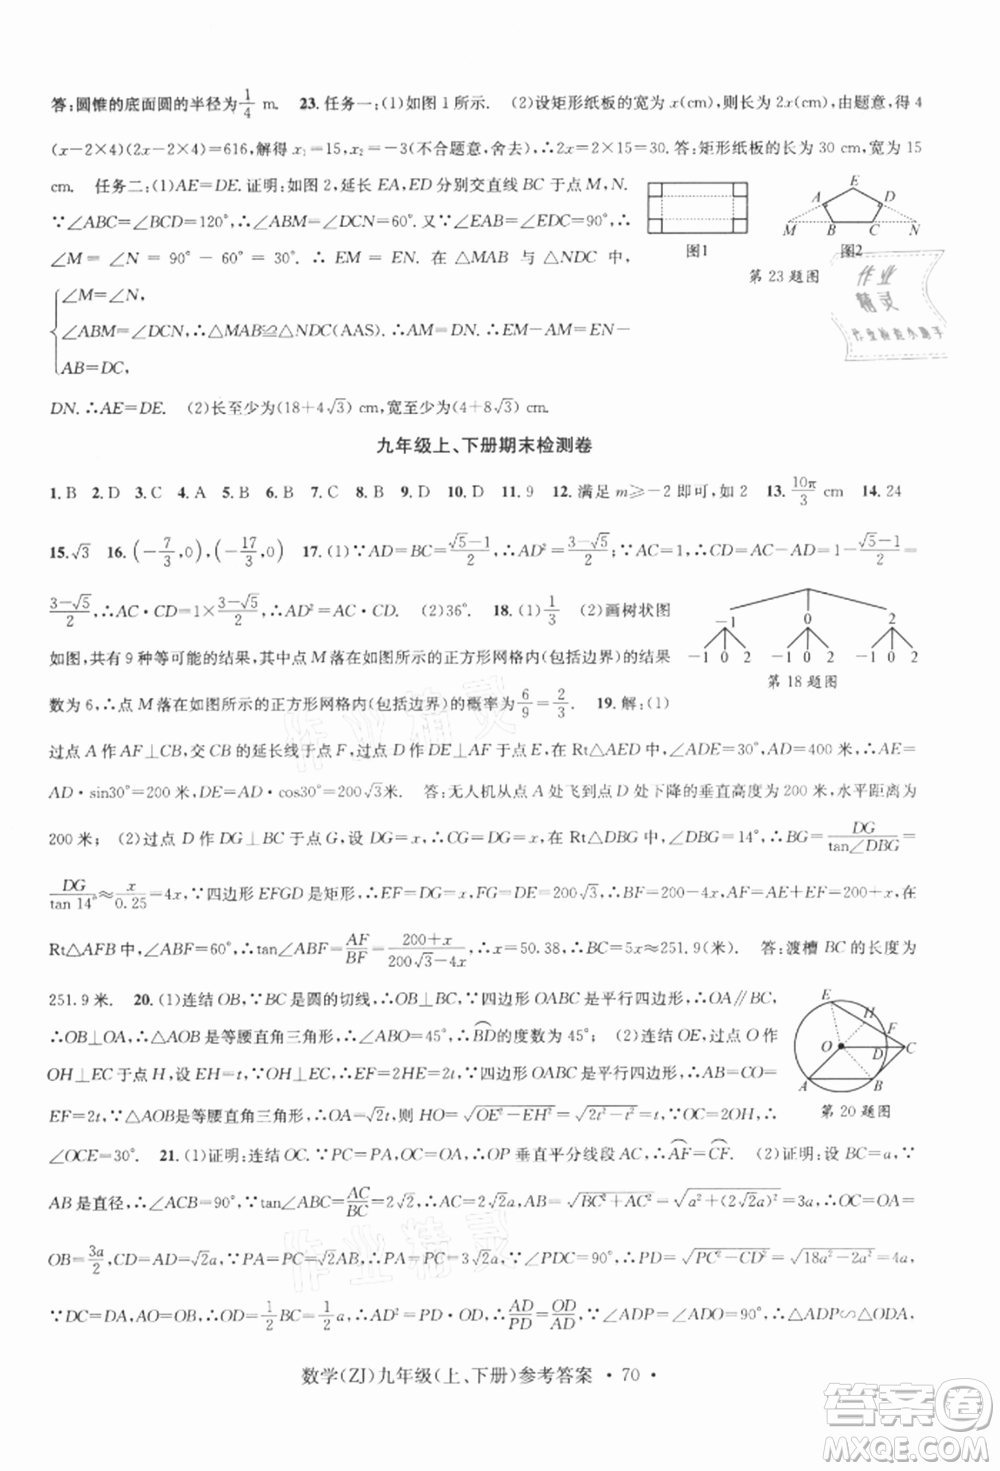 答:圆锥的底面圆的半径为1/4 m.  23.任务一:(1)如图1所示.  (2)设矩形纸板的宽为x(cm),则长为2x(cm),由题意,得4
(x-2×4)(2x-2×4)=616,解得x₁=15,x₂=-3(不合题意,舍去),∴2x=2×15=30.答:矩形纸板的长为30 cm,宽为15
cm.  任务二:(1)AE=DE.证明:如图2,延长EA,ED分别交直线BC于点M,N.
∵∠ABC=∠BCD=120°,∴∠ABM=∠DCN=60°.又∵∠EAB=∠EDC=90°,∴
∠M=∠N=90°-60°=30°.∴EM=EN.在△MAB与△NDC中,
∠M=∠N,
∠ABM=∠DCN,∴△MAB≌△NDC(AAS).∴AM=
AB=DC,
DN.∴AE=DE.  (2)长至少为(18+4√3) cm,宽至少为(4+8√3) cm.
E
A D
M B C N
图1 图2
第23题图
作业
精灵
作业检查小助手
九年级上、下册期末检测卷
1.B  2.D  3.C  4.A  5.B  6.B  7.B  8.C  9.D  10.D  11.9  12.满足m≥-2即可,如2  13.10π/3 cm  14.24
15.√3  16.(-7/3,0),(-17/3,0)  17.(1)∵AD=BC=(√5-1)/2,∴AD²=(3-√5)/2,∵AC=1,∴CD=AC-AD=1-(√5-1)/2=
(3-√5)/2,∴AC·CD=1×(3-√5)/2,∴AD²=AC·CD.  (2)36°.  18.(1)1/3  (2)画树状图
如图,共有9种等可能的结果,其中点M落在如图所示的正方形网格内(包括边界)的结果
数为6,∴点M落在如图所示的正方形网格内(包括边界)的概率为6/9=2/3.  19.解:(1)
-1 0 2
-1 0 2 -1 0 2 -1 0 2
第18题图
过点A作AF⊥CB,交CB的延长线于点F,过点D作DE⊥AF于点E,在Rt△AED中,∠ADE=30°,AD=400米,∴AE=
AD·sin30°=200米,DE=AD·cos30°=200√3米.  答:无人机从点A处飞到点D处下降的垂直高度为200米,水平距离为
200米;  (2)过点D作DG⊥BC于点G,设DG=x,∴CG=DG=x,在Rt△DBG中,∠DBG=14°,∴BG=DG/tan∠DBG=
DG/tan 14°≈x/0.25=4x,∵四边形EFGD是矩形,∴EF=DG=x,DE=FG=200√3,∴AF=200+x,BF=200√3-4x,在
Rt△AFB中,∠ABF=60°,∴tan∠ABF=AF/BF=(200+x)/(200√3-4x)=√3,∴x=50.38,∴BC=5x≈251.9(米).  答:渡槽BC的长度为
251.9米.  20.(1)连结OB,∵BC是圆的切线,∴OB⊥BC,∵四边形OABC是平行四边形,∴OA∥BC,
∴OB⊥OA,∴△AOB是等腰直角三角形,∴∠ABO=45°,∴BD的度数为45°;  (2)连结OE,过点O作
OH⊥EC于点H,设EH=t,∵OH⊥EC,∴EF=2HE=2t,∵四边形OABC是平行四边形,∴AB=CO=
EF=2t,∵△AOB是等腰直角三角形,∴OA=√2t,则HO=√(OE²-EH²)=√(2t²-t²)=t,∵OC=2OH,∴
∠OCE=30°.  21.(1)证明:连结OC.∵PC=PA,OC=OA,∴OP垂直平分线段AC,∴AF=CF.  (2)证明:设BC=a,∵
E H F
O D C
A B
第20题图
AB是直径,∴∠ACB=90°,∵tan∠ABC=AC/BC=2√2,∴AC=2√2a,∴AB=√(BC²+AC²)=√(a²+(2√2a)²)=3a,∴OC=OA=
OB=3a/2,CD=AD=√2a,∵PA·BC=AB·CD,∴PA·a=3a·√2a,∴PA=PC=3√2a,∵∠PDC=90°,∴PD=√(PC²-CD²)=√(18a²-2a²)=4a,
∵DC=DA,AO=OB,∴OD=1/2BC=1/2a,∴AD²=PD·OD,∴AD/PD=OD/AD,∵∠ADP=∠ADO=90°,∴△ADP∽△ODA,
数学(ZJ)九年级(上、下册)参考答案 · 70 ·
作业精灵
作业精灵
答案卷
MXQE.COM